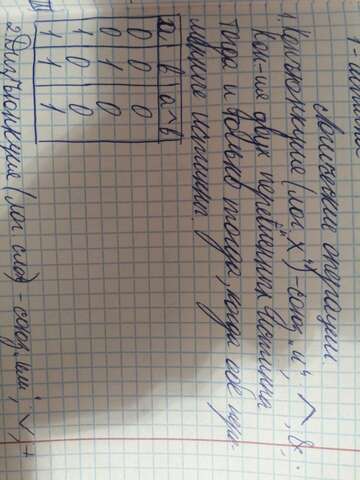 Логические операции.
1. Конъюнкция (лог. "х") - союз "и", ∧, &, ·
Кон-ия двух переменных истинна
тогда и только тогда, когда обе пере-
менные истинны.
a b a∧b
0 0 0
0 1 0
1 0 0
1 1 1
2 Дизъюнкция (лог слож) - союз "или", ∨, +